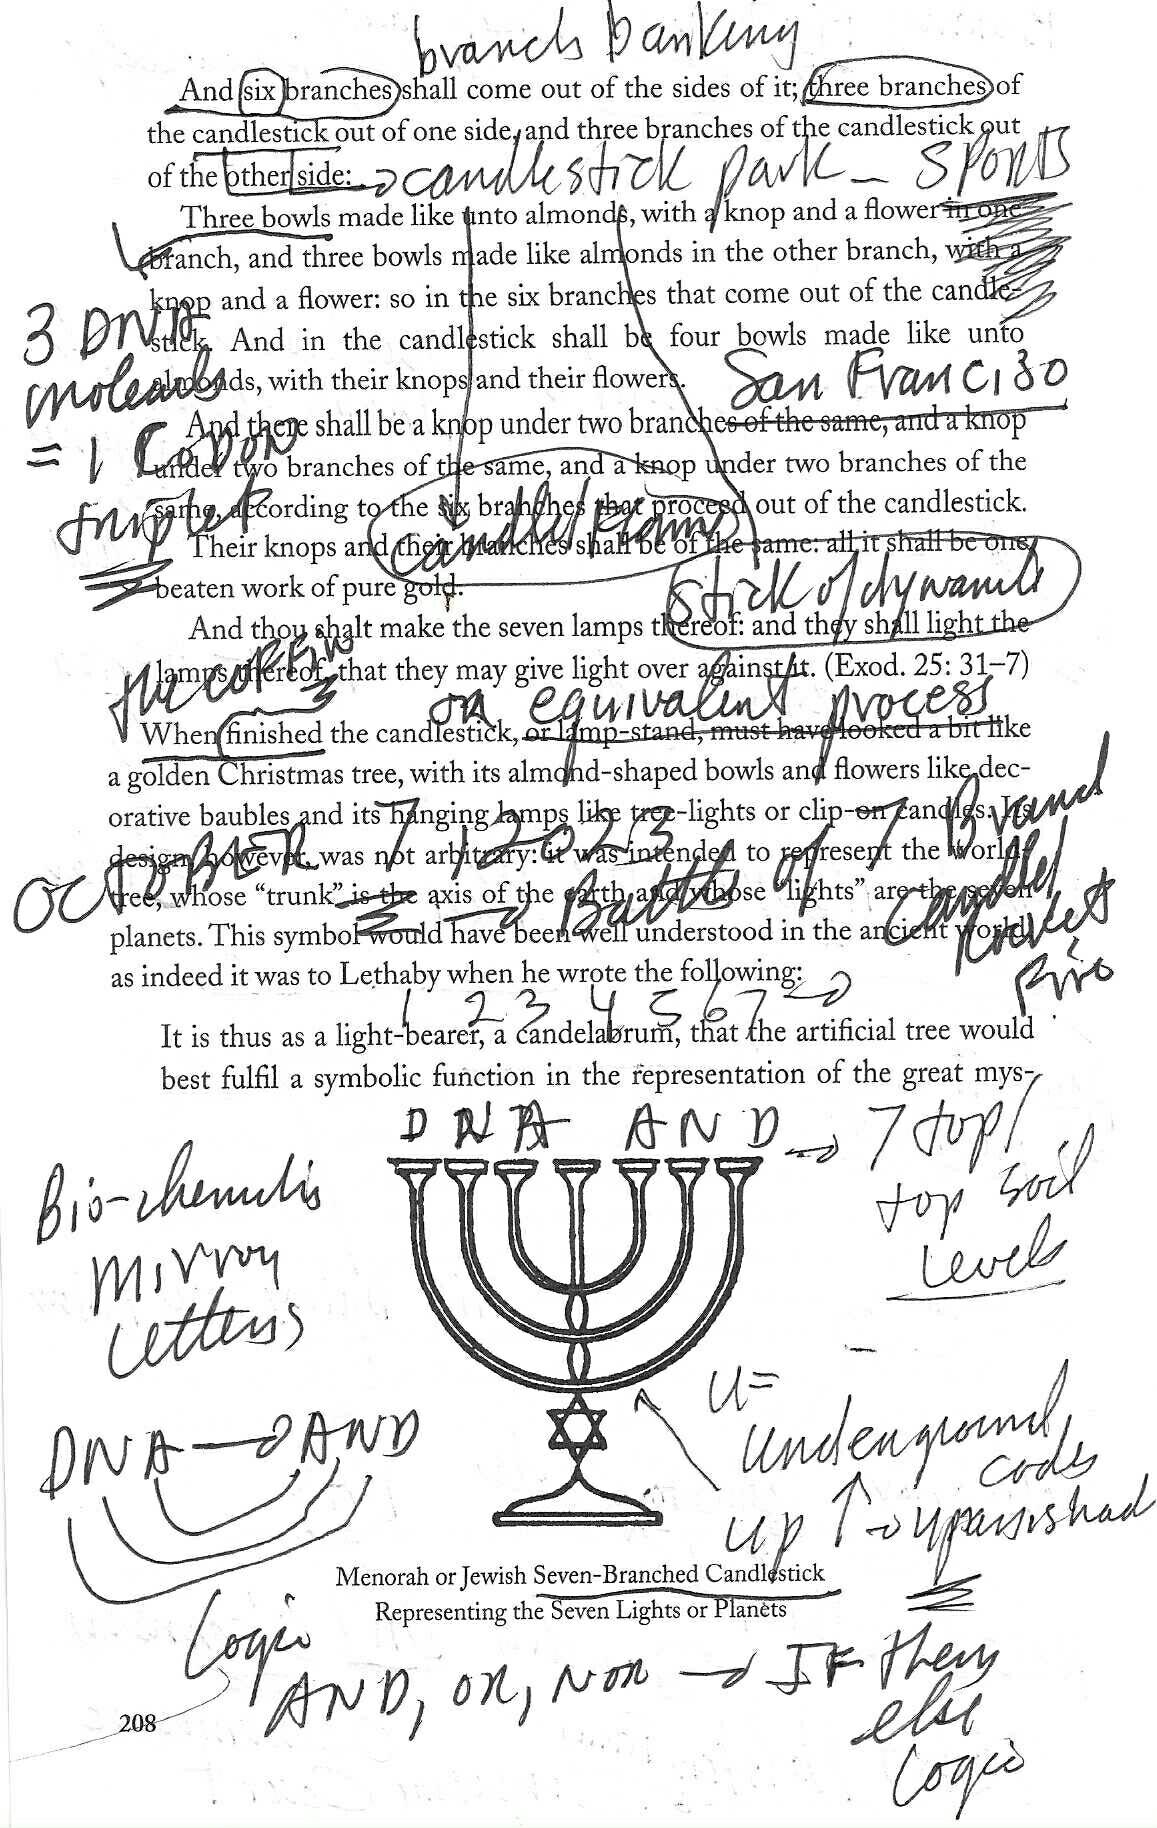 branch banking
And six branches shall come out of the sides of it; three branches of
the candlestick out of one side, and three branches of the candlestick out
of the other side: candlestick park – SPORTS
Three bowls made like unto almonds, with a knop and a flower in one
branch, and three bowls made like almonds in the other branch, with a
knop and a flower: so in the six branches that come out of the candle-
3 DNA
stick. And in the candlestick shall be four bowls made like unto
almonds, with their knops and their flowers.
San Francisco
And there shall be a knop under two branches of the same, and a knop
= 1 Codon
under two branches of the same, and a knop under two branches of the
same, according to the six branches that proceed out of the candlestick.
triplet
Their knops and their branches shall be of the same: all it shall be one
beaten work of pure gold.
stick of
And thou shalt make the seven lamps thereof: and they shall light the
lamps thereof, that they may give light over against it. (Exod. 25: 31–7)
or equivalent process
When finished the candlestick, or lamp-stand, must have looked a bit like
a golden Christmas tree, with its almond-shaped bowls and flowers like dec-
orative baubles and its hanging lamps like tree-lights or clip-on candles. Its
OCTOBER 7, 2023
design, however, was not arbitrary: it was intended to represent the world
tree, whose "trunk" is the axis of the earth and whose "lights" are the seven
Battle of 7 Branch
Candle
Rocket
Fire
planets. This symbol would have been well understood in the ancient world,
as indeed it was to Lethaby when he wrote the following:
1 2 3 4 5 6 7
It is thus as a light-bearer, a candelabrum, that the artificial tree would
best fulfil a symbolic function in the representation of the great mys-
D N A A N D
7 top/
top soil
Levels
Mirror
Letters
DNA AND
U=
underground
codes
up
Menorah or Jewish Seven-Branched Candlestick
Representing the Seven Lights or Planets
Logic
AND, OR, NOR IF then
else
Logic
208